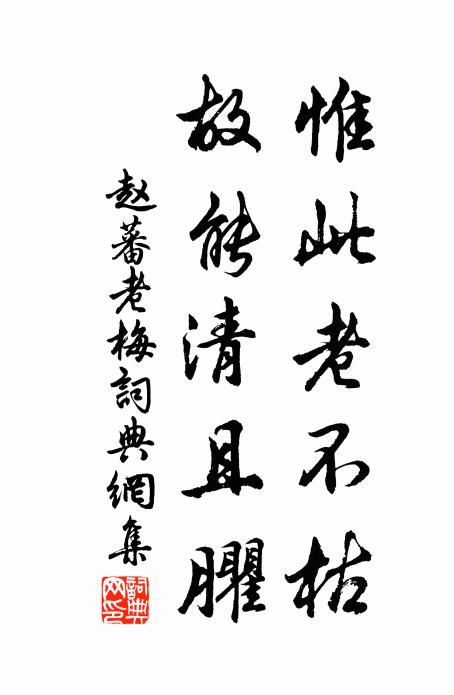 惟此老不枯
故能清且臞
赵蕃老梅詞典網集
詞典网印